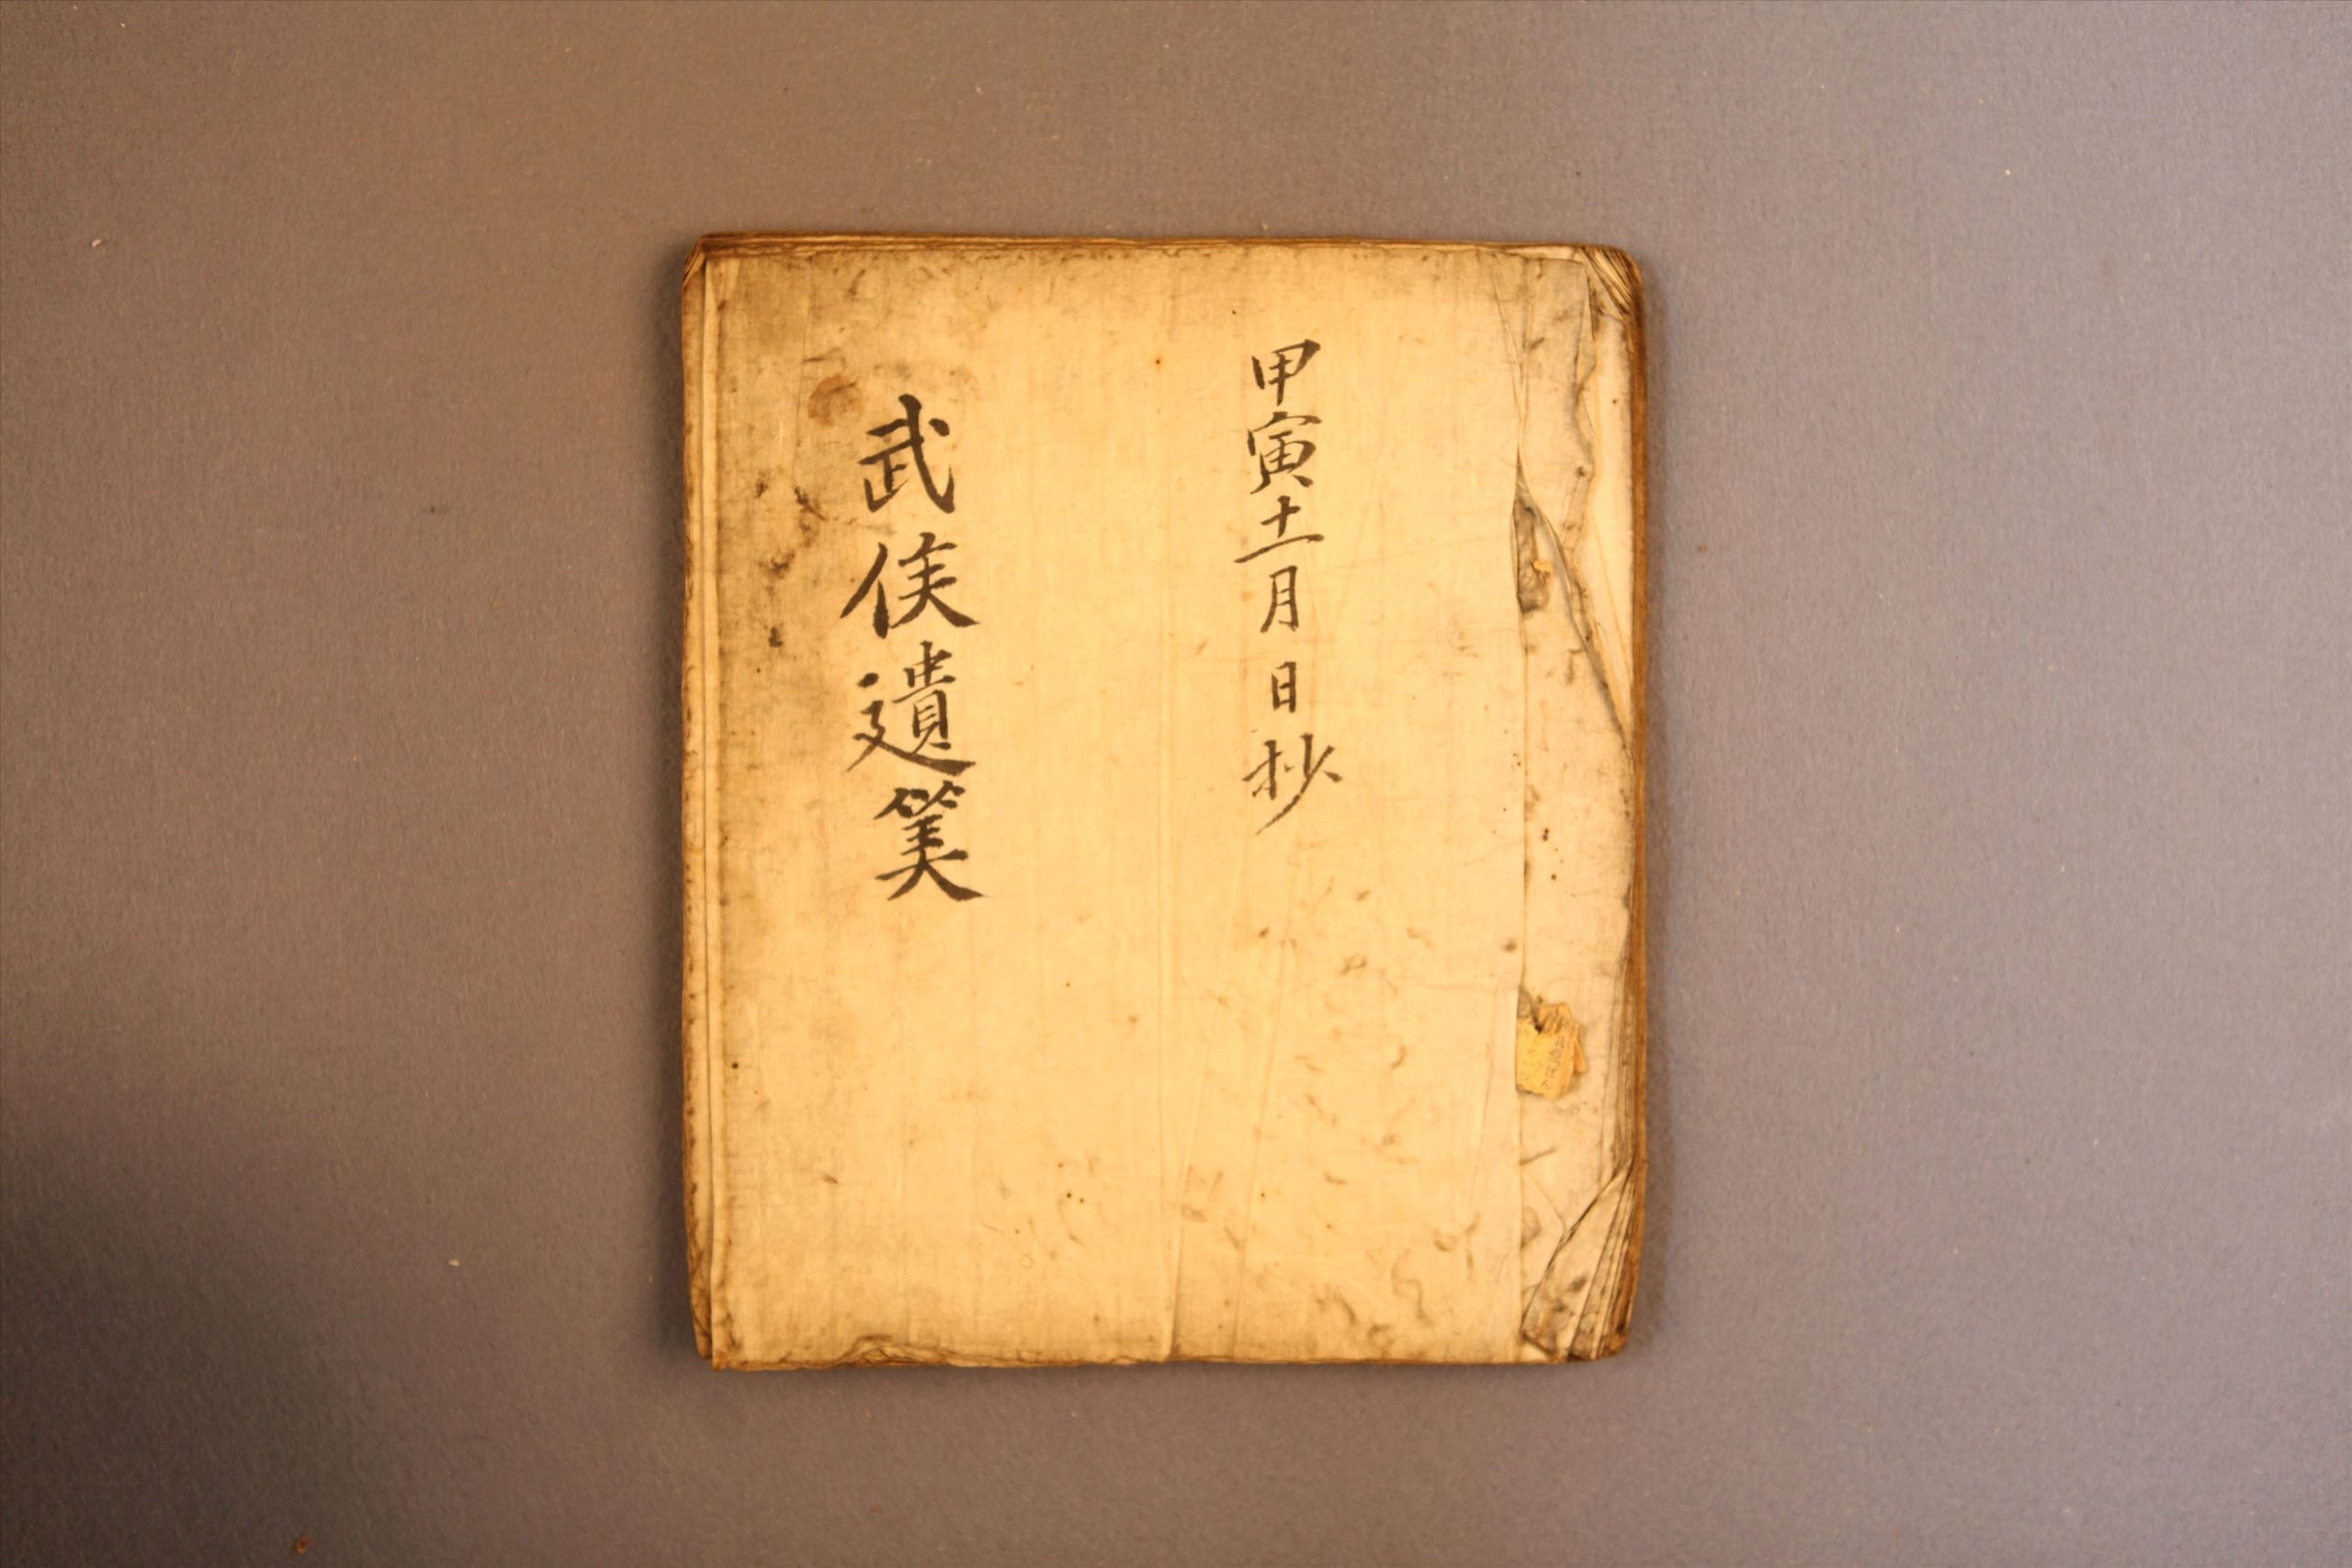 甲寅十一月日抄
武侯遺筴